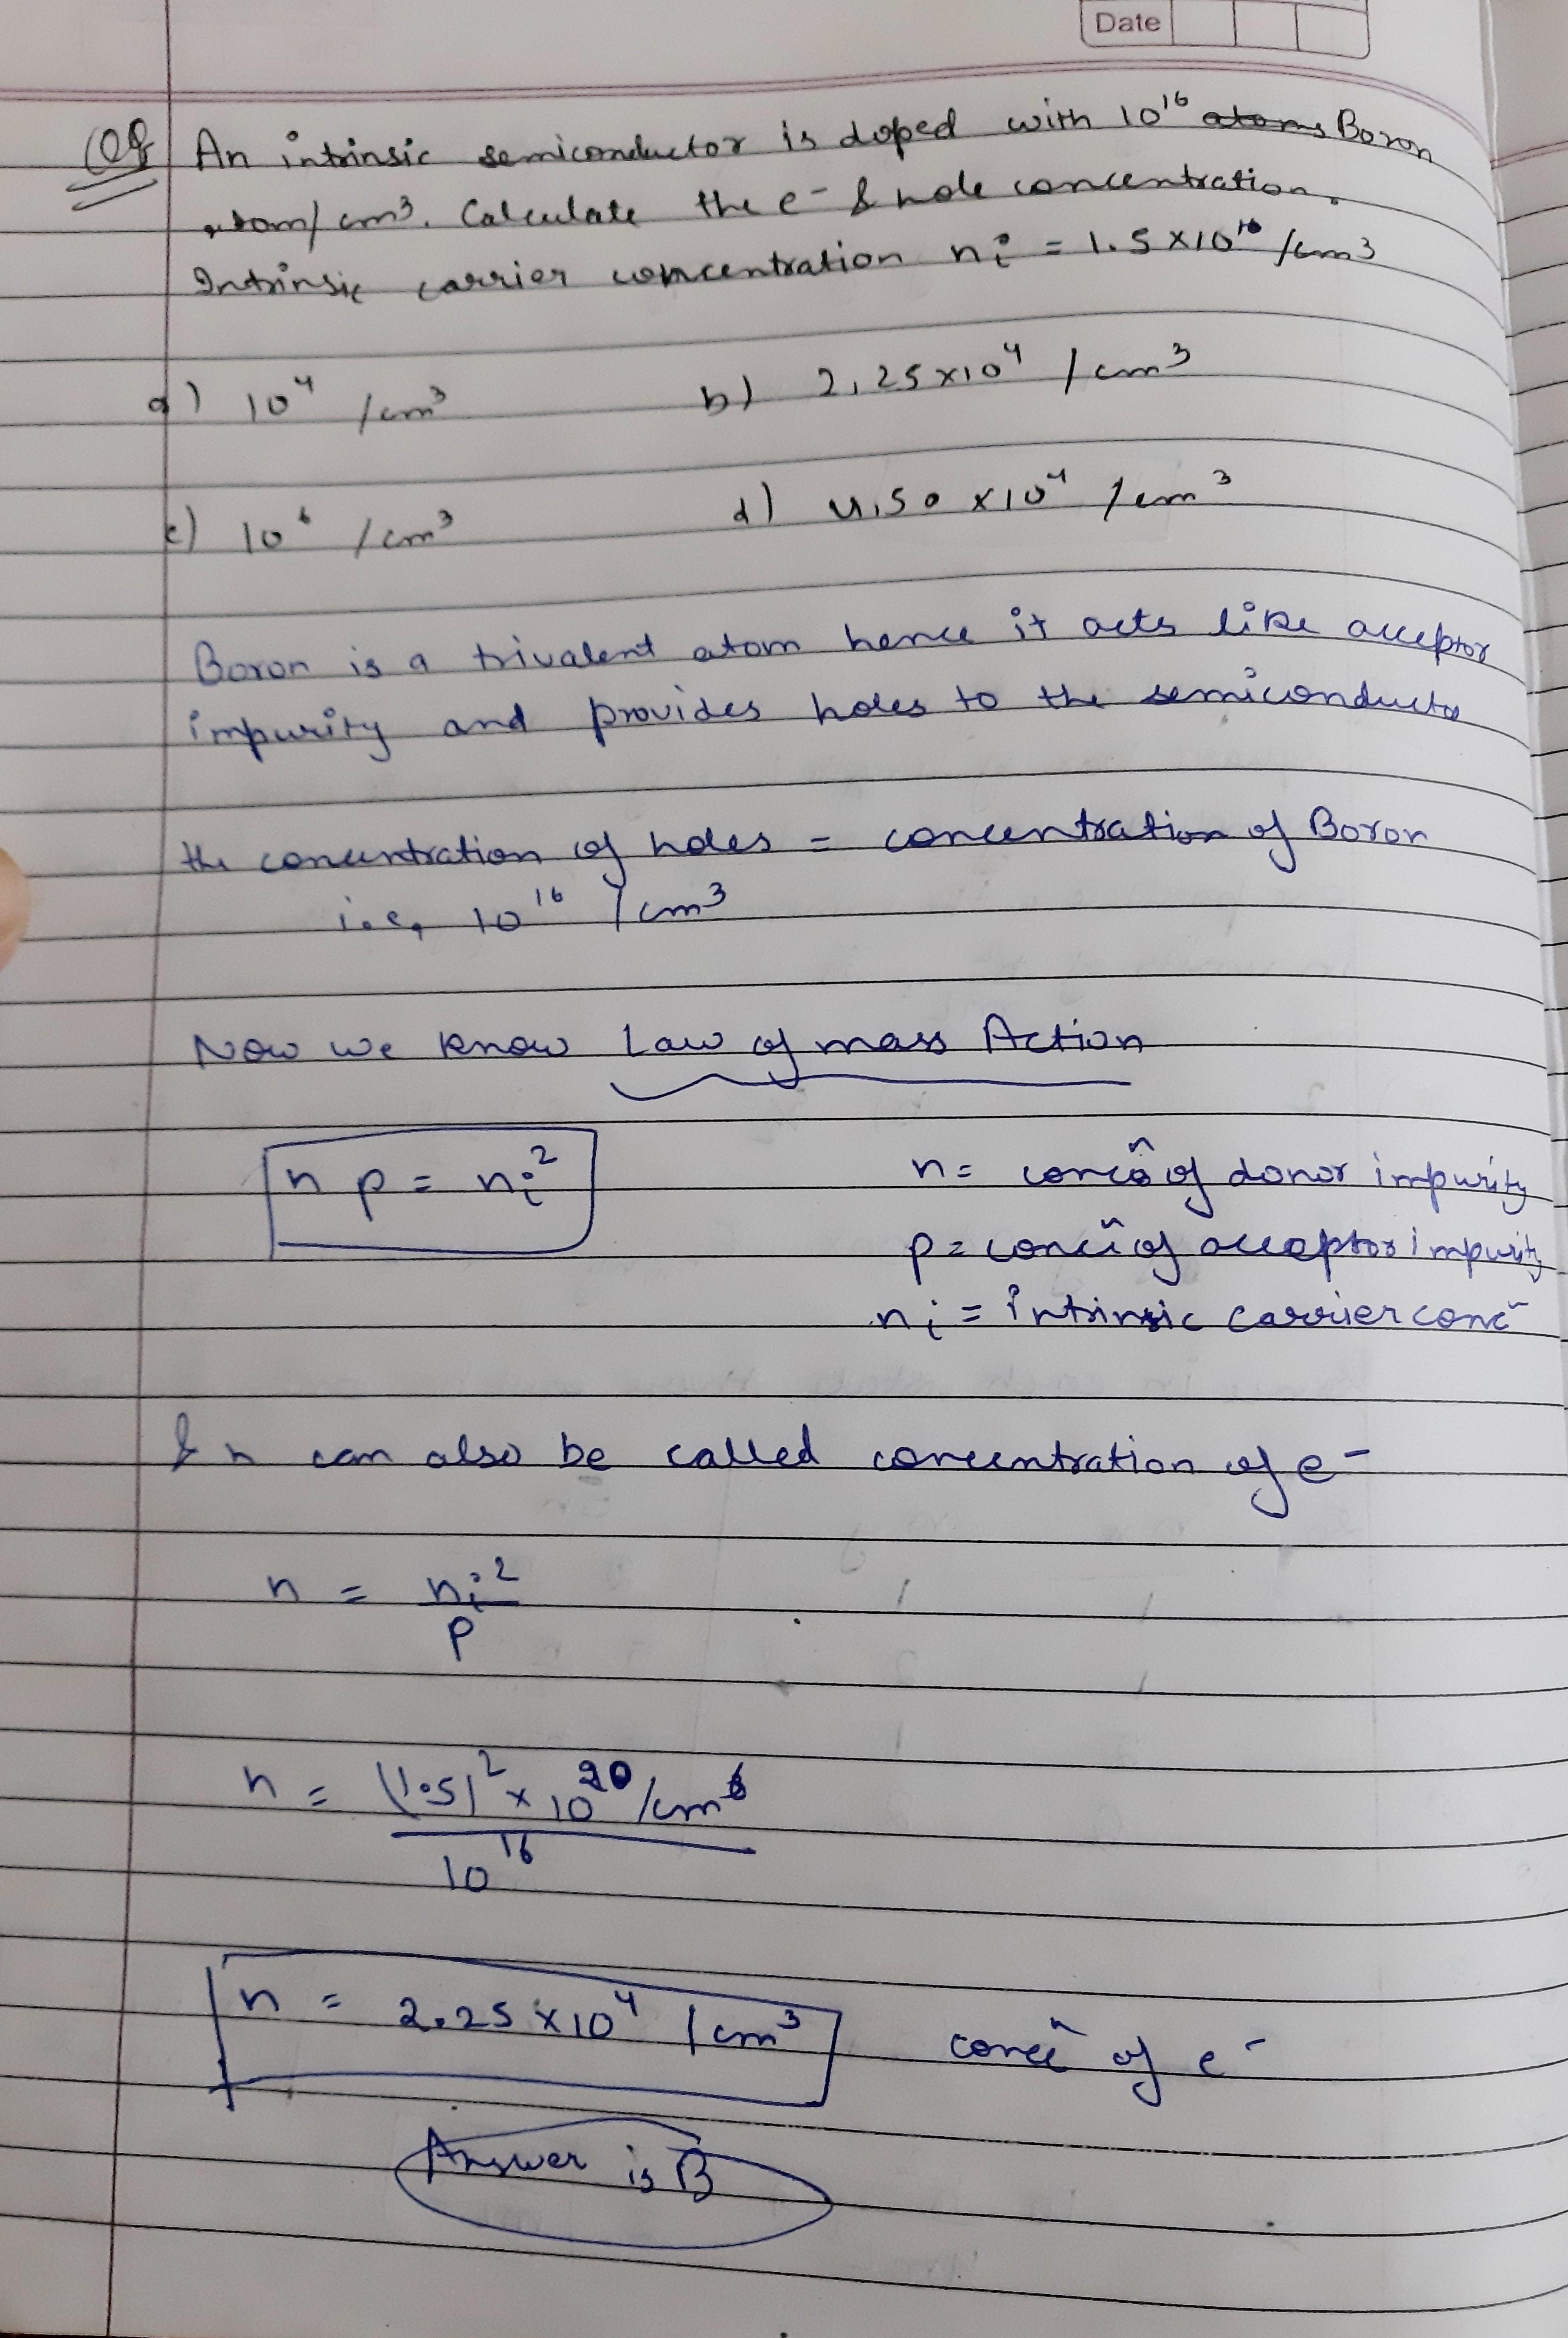 Date
Q8 An intrinsic semiconductor is doped with 10¹⁶ atoms Boron
atom/cm³. Calculate the e⁻ & hole concentration.
Intrinsic carrier concentration nᵢ = 1.5 × 10¹⁰ /cm³
a) 10⁴ /cm³ b) 2.25×10⁴ /cm³
c) 10⁶ /cm³ d) 4.50 ×10⁴ /cm³
Boron is a trivalent atom hence it acts like acceptor
impurity and provides holes to the semiconducto
the concentration of holes = concentration of Boron
i.e, 10¹⁶ /cm³
Now we know Law of mass Action
n p = nᵢ² n = concⁿ of donor impurity
p = concⁿ of acceptor impurity
nᵢ = intrinsic carrier conc
& n can also be called concentration of e⁻
n = nᵢ²
p
n = (1.5)² × 10²⁰ /cm⁶
10¹⁶
n = 2.25 × 10⁴ /cm³ concⁿ of e⁻
Answer is B